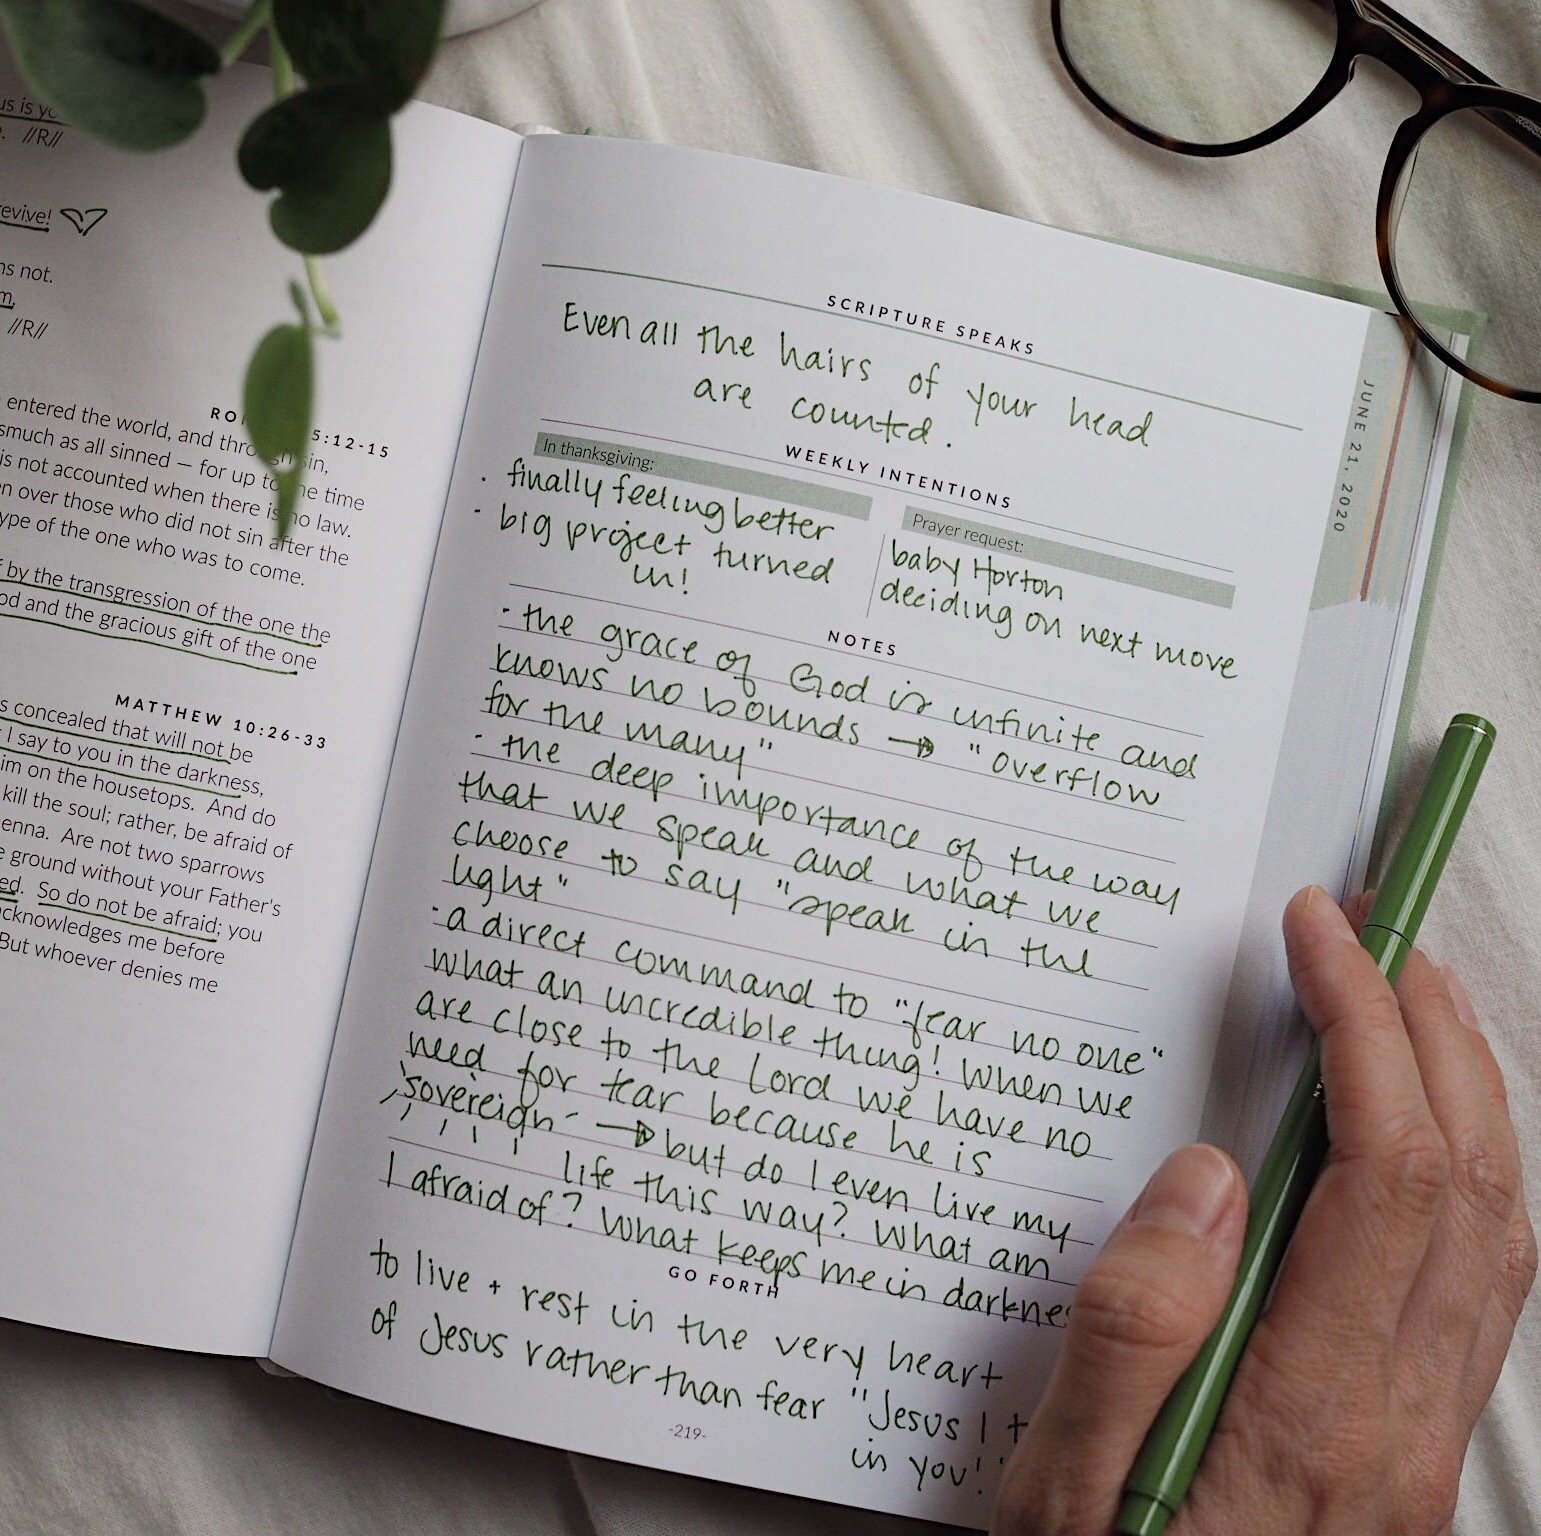 us is yo
//R//
revive!
ns not.
m,
//R//
5:12-15
entered the world, and through sin,
smuch as all sinned – for up to the time
is not accounted when there is no law.
en over those who did not sin after the
ype of the one who was to come.
f by the transgression of the one the
od and the gracious gift of the one
MATTHEW 10:26-33
s concealed that will not be
I say to you in the darkness,
im on the housetops. And do
kill the soul; rather, be afraid of
enna. Are not two sparrows
e ground without your Father's
ed. So do not be afraid; you
acknowledges me before
But whoever denies me
SCRIPTURE SPEAKS
Even all the hairs of your head
are counted.
WEEKLY INTENTIONS
In thanksgiving:
· finally feeling better
· big project turned
in!
Prayer request:
baby Horton
deciding on next move
NOTES
· the grace of God is infinite and
knows no bounds → "overflow
for the many"
· the deep importance of the way
that we speak and what we
choose to say "speak in the
light"
· a direct command to "fear no one"
what an incredible thing! When we
are close to the Lord we have no
need for fear because he is
sovereign → but do I even live my
life this way? What am
I afraid of? What keeps me in darknes
GO FORTH
to live + rest in the very heart
of Jesus rather than fear "Jesus I t
in you!"
-219-
JUNE 21, 2020